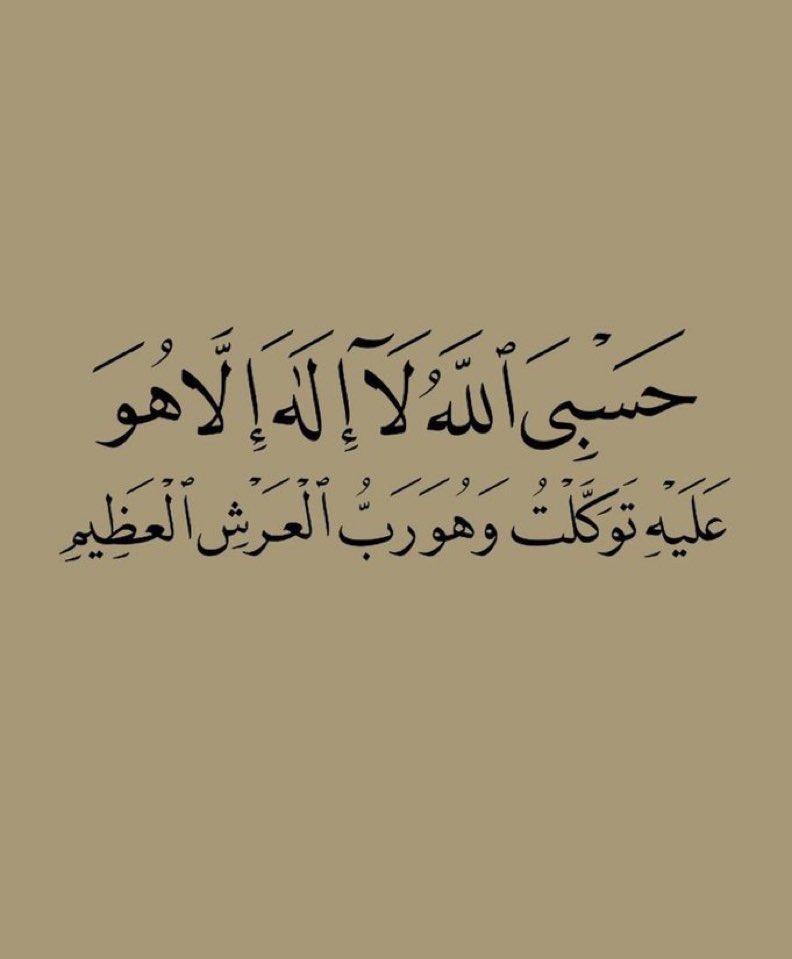 حَسْبِىَ ٱللَّهُ لَآ إِلَٰهَ إِلَّا هُوَ
عَلَيْهِ تَوَكَّلْتُ وَهُوَ رَبُّ ٱلْعَرْشِ ٱلْعَظِيمِ